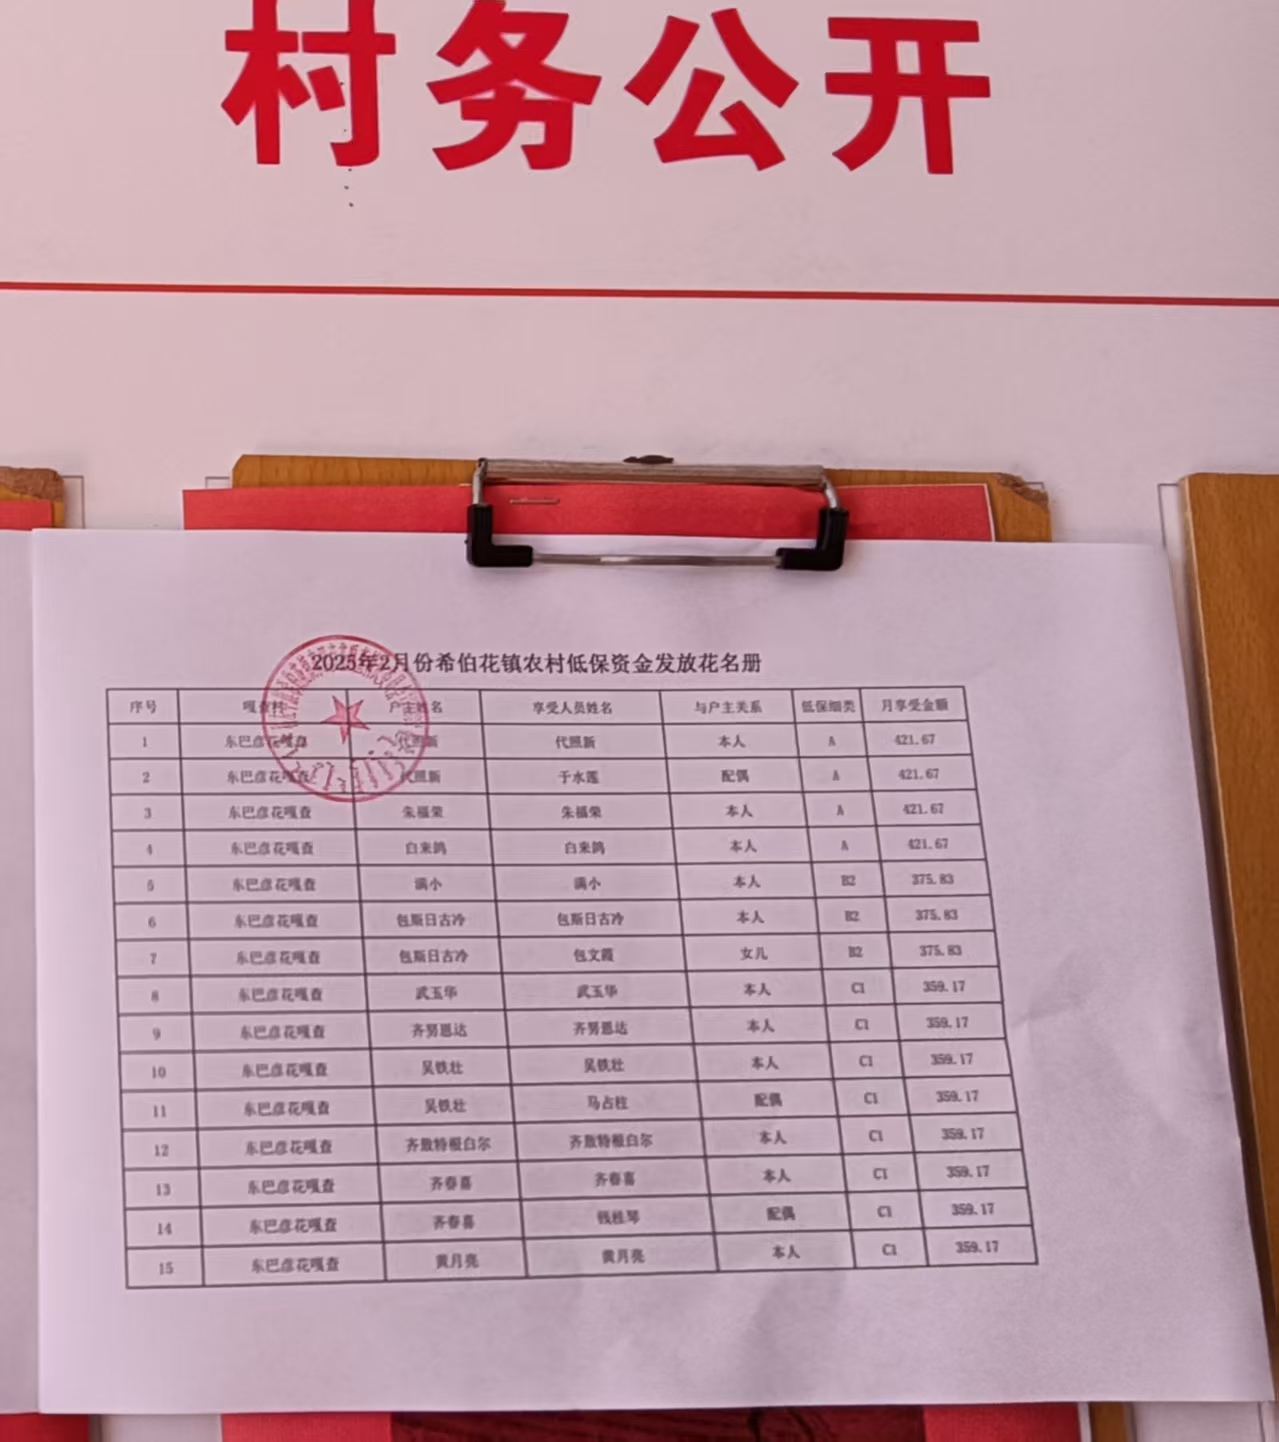 村务公开
2025年2月份希伯花镇农村低保资金发放花名册
序号 嘎查村 户主姓名 享受人员姓名 与户主关系 低保细类 月享受金额
1 东巴彦花嘎查 代照新 代照新 本人 A 421.67
2 东巴彦花嘎查 代照新 于水莲 配偶 A 421.67
3 东巴彦花嘎查 朱福荣 朱福荣 本人 A 421.67
4 东巴彦花嘎查 白来鸽 白来鸽 本人 A 421.67
5 东巴彦花嘎查 满小 满小 本人 B2 375.83
6 东巴彦花嘎查 包斯日古冷 包斯日古冷 本人 B2 375.83
7 东巴彦花嘎查 包斯日古冷 包文霞 女儿 B2 375.83
8 东巴彦花嘎查 武玉华 武玉华 本人 C1 359.17
9 东巴彦花嘎查 齐努恩达 齐努恩达 本人 C1 359.17
10 东巴彦花嘎查 吴铁壮 吴铁壮 本人 C1 359.17
11 东巴彦花嘎查 吴铁壮 马占柱 配偶 C1 359.17
12 东巴彦花嘎查 齐敖特根白尔 齐敖特根白尔 本人 C1 359.17
13 东巴彦花嘎查 齐春喜 齐春喜 本人 C1 359.17
14 东巴彦花嘎查 齐春喜 钱桂琴 配偶 C1 359.17
15 东巴彦花嘎查 黄月亮 黄月亮 本人 C1 359.17